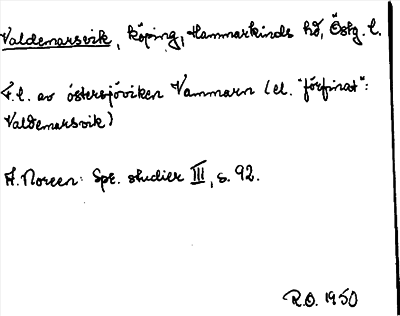 Valdemarsvik, köping, Hammarkinds hd, Östg. l.
F.l. av östersjöviken Vammarn (el. "förfinat":
Valdemarsvik)
A. Noreen: Spr. studier III, s. 92.
R.O. 1950